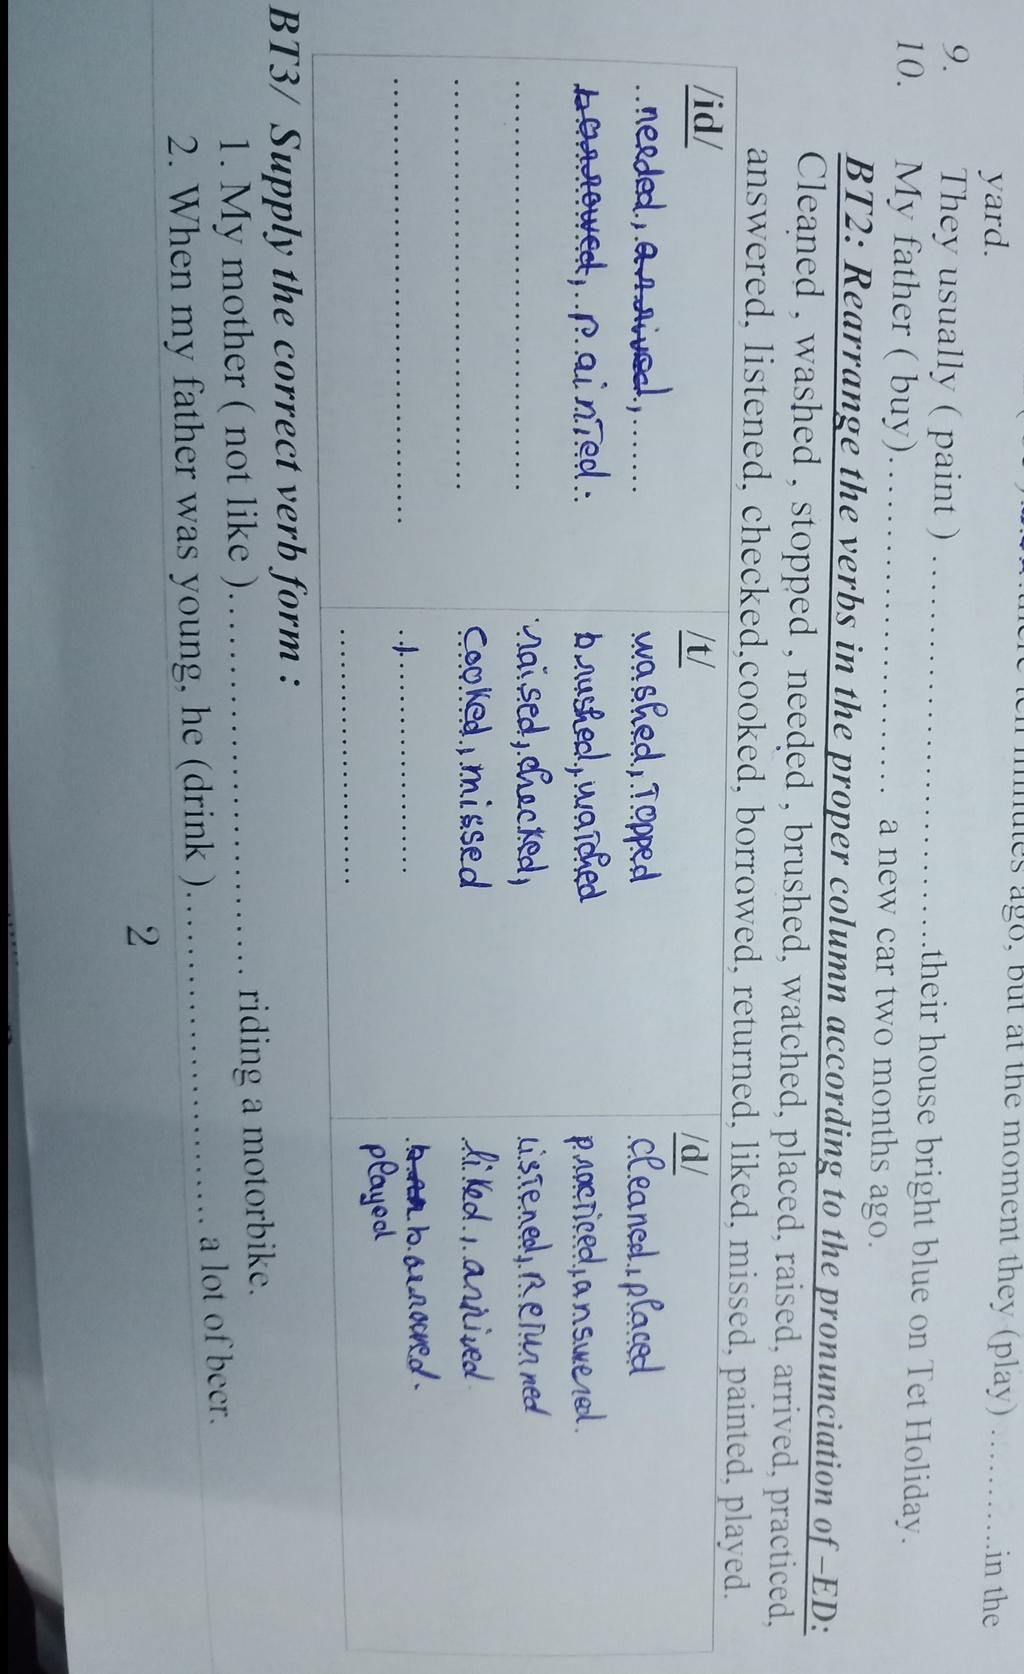 yard.
9. They usually ( paint ) .................................their house bright blue on Tet Holiday.
10. My father ( buy)............................ a new car two months ago.
BT2: Rearrange the verbs in the proper column according to the pronunciation of –ED:
Cleaned , washed , stopped , needed , brushed, watched, placed, raised, arrived, practiced,
answered, listened, checked,cooked, borrowed, returned, liked, missed, painted, played.
/id/
needed, arrived,
borrowed, painted.
/t/
washed, Topped
brushed, watched
raised, checked,
cooked, missed
/d/
cleaned, placed
practiced, answered.
listened, Returned
liked, arrived
borrowed.
played
BT3/ Supply the correct verb form :
1. My mother ( not like )................................. riding a motorbike.
2. When my father was young, he (drink )............................. a lot of beer.
2